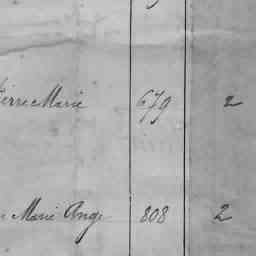 Pierre Marie 679 2
Marie Ange 808 2